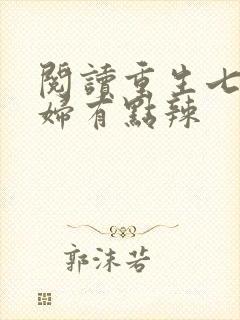 閱讀重生七
婦有點辣
郭沫若